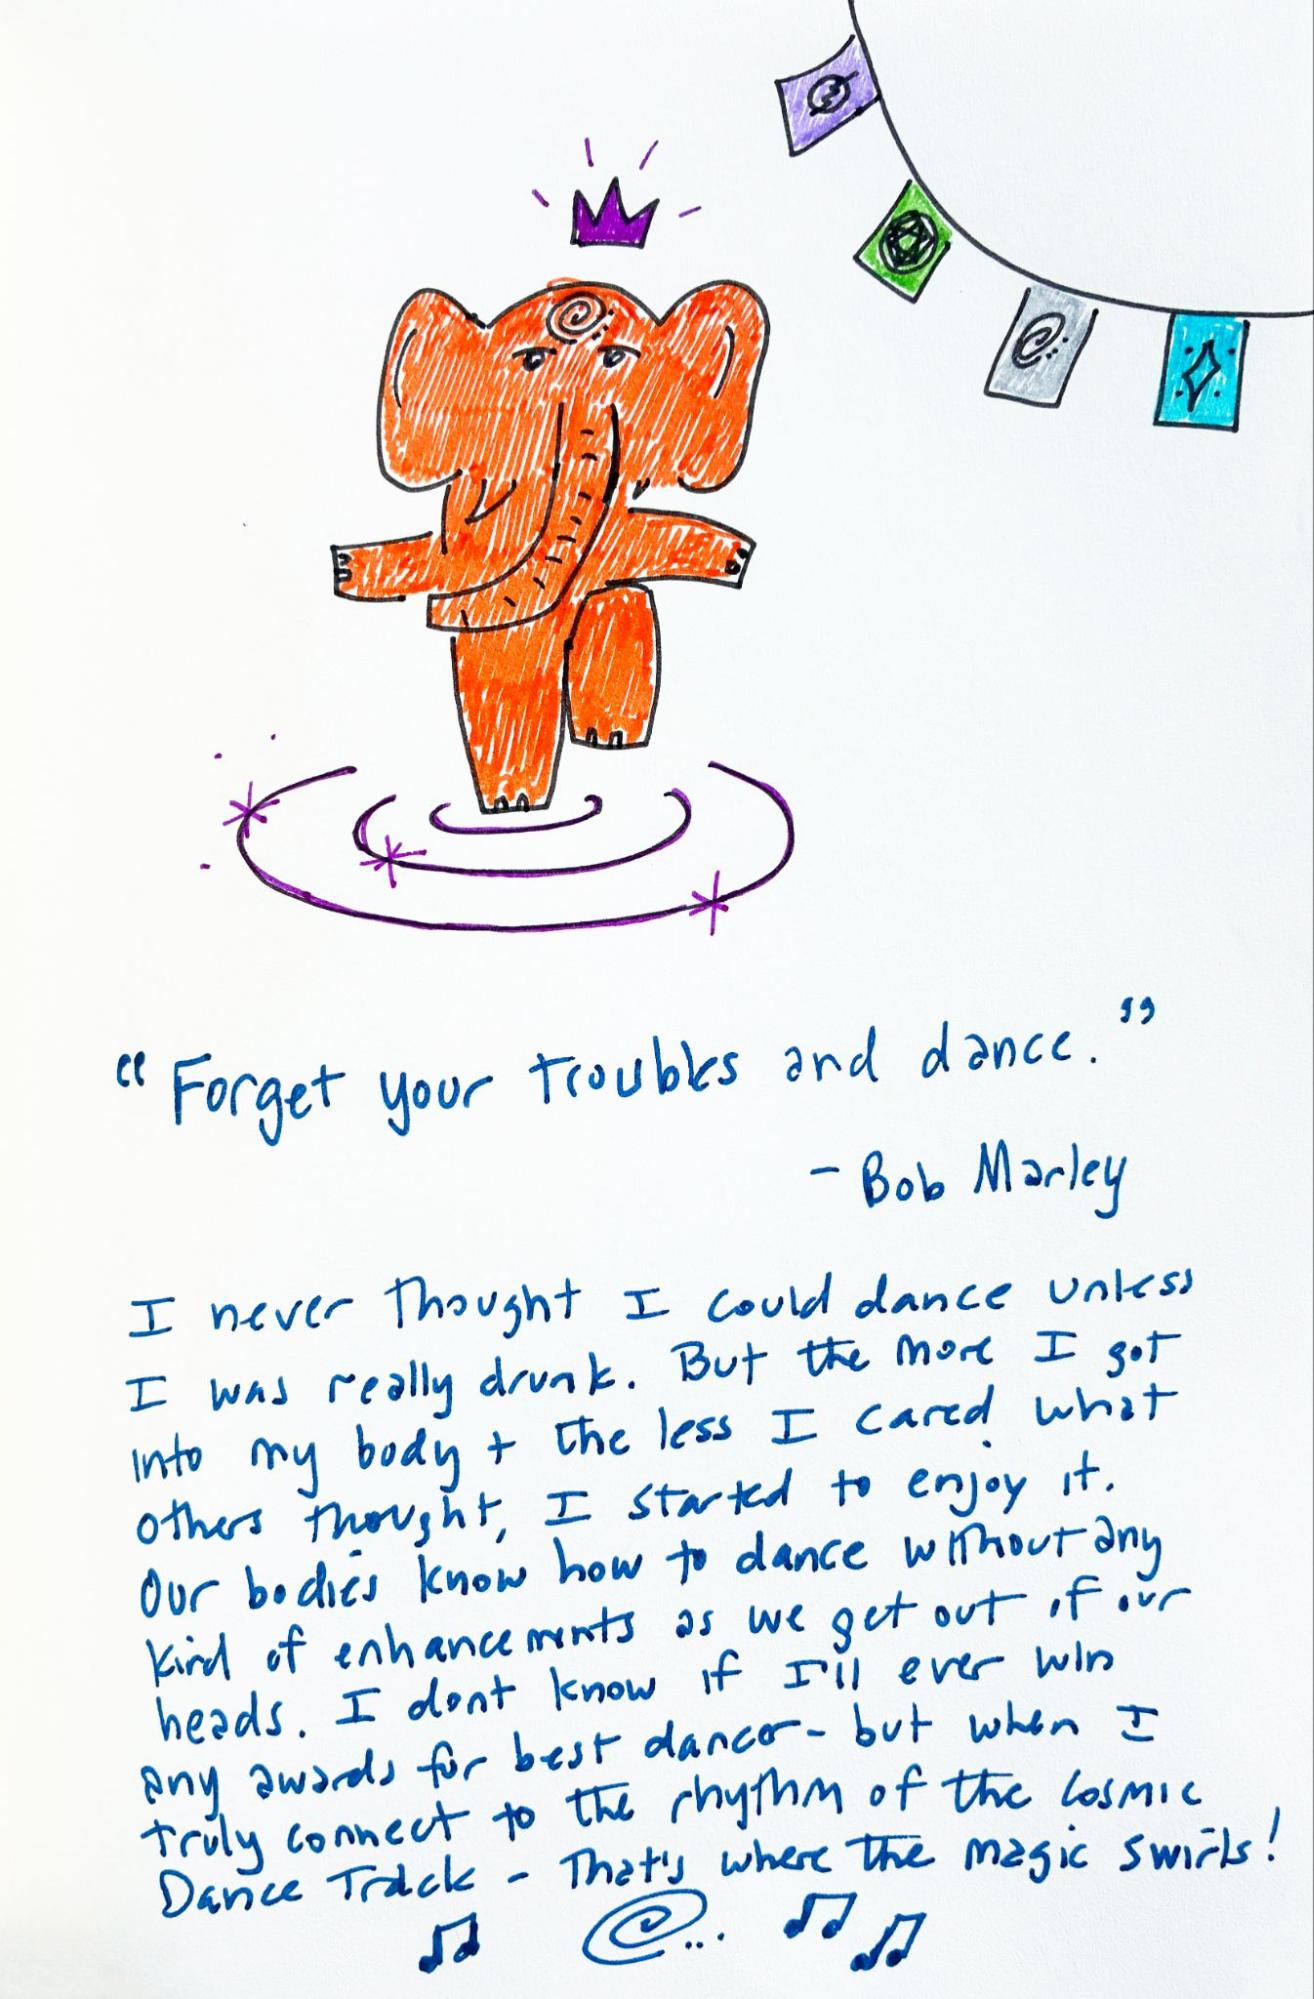 “Forget your troubles and dance.”
- Bob Marley
I never thought I could dance unless
I was really drunk. But the more I got
into my body + the less I cared what
others thought, I started to enjoy it.
Our bodies know how to dance without any
kind of enhancements as we get out of our
heads. I dont know if I'll ever win
any awards for best dancer - but when I
truly connect to the rhythm of the Cosmic
Dance Track - That's where the magic swirls!